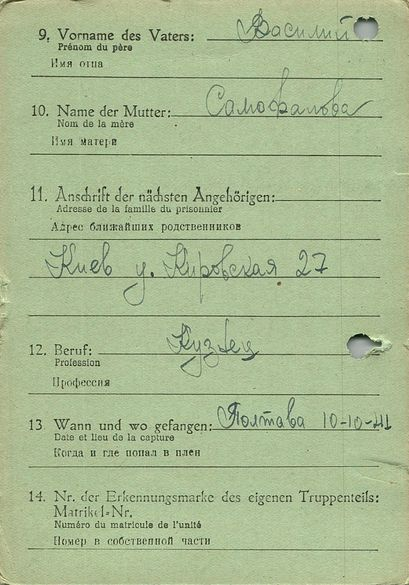 9. Vorname des Vaters: Василий
Prénom du père
Имя отца
10. Name der Mutter: Самофалова
Nom de la mère
Имя матери
11. Anschrift der nächsten Angehörigen:
Adresse de la famille du prisonnier
Адрес ближайших родственников
Киев у. Кировская 27
12. Beruf: Кузнец
Profession
Профессия
13 Wann und wo gefangen: Полтава 10-10-41
Date et lieu de la capture
Когда и где попал в плен
14. Nr. der Erkennungsmarke des eigenen Truppenteils:
Matrikel-Nr.
Numéro du matricule de l'unité
Номер в собственной части